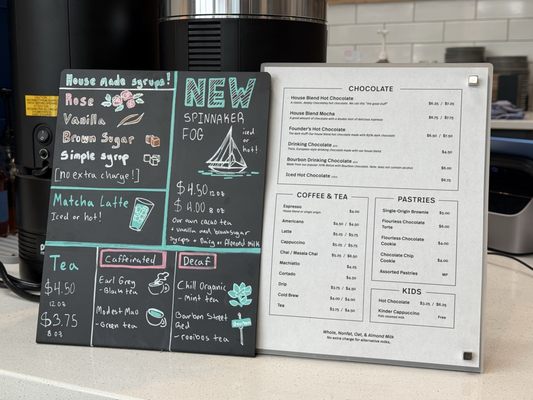 House made syrups!
Rose
Vanilla
Brown Sugar
Simple syrup
[no extra charge!]
Matcha Latte
Iced or hot!
Tea
$4.50
12 oz
$3.75
8 oz
Caffeinated
Earl Grey
- Black tea
Modest Mao
- Green tea
NEW
SPINNAKER
FOG
iced
or
hot!
$4.50 12oz
$4.00 8 oz
Our own cacao tea
+ vanilla and brown sugar
syrups + Dairy or Almond milk
Decaf
Chill Organic
- Mint tea
Bourbon Street
Red
- rooibos tea
CHOCOLATE
House Blend Hot Chocolate $6.25 / $7.25
House Blend Mocha $6.75 / $7.75
Founder's Hot Chocolate $6.50 / $7.50
Drinking Chocolate $4.50
Bourbon Drinking Chocolate
Iced Hot Chocolate
COFFEE & TEA
Espresso $3.00
House blend or single origin
Americano $4.50 / $4.50
Latte $5.25 / $5.75
Cappuccino $5.25 / $5.75
Chai / Masala Chai $5.75 / $6.50
Macchiato $4.25
Cortado $4.50
Drip $3.75 / $4.50
Cold Brew $4.00 / $5.00
Tea $3.75 / $4.50
PASTRIES
Single-Origin Brownie $5.00
Flourless Chocolate $6.00
Torte
Flourless Chocolate $4.00
Cookie
Chocolate Chip $4.00
Cookie
Assorted Pastries MP
KIDS
Hot Chocolate $5.25 / $6.25
Kinder Cappuccino Free
Whole, Nonfat, Oat, and Almond Milk
No extra charge for alternative milks.